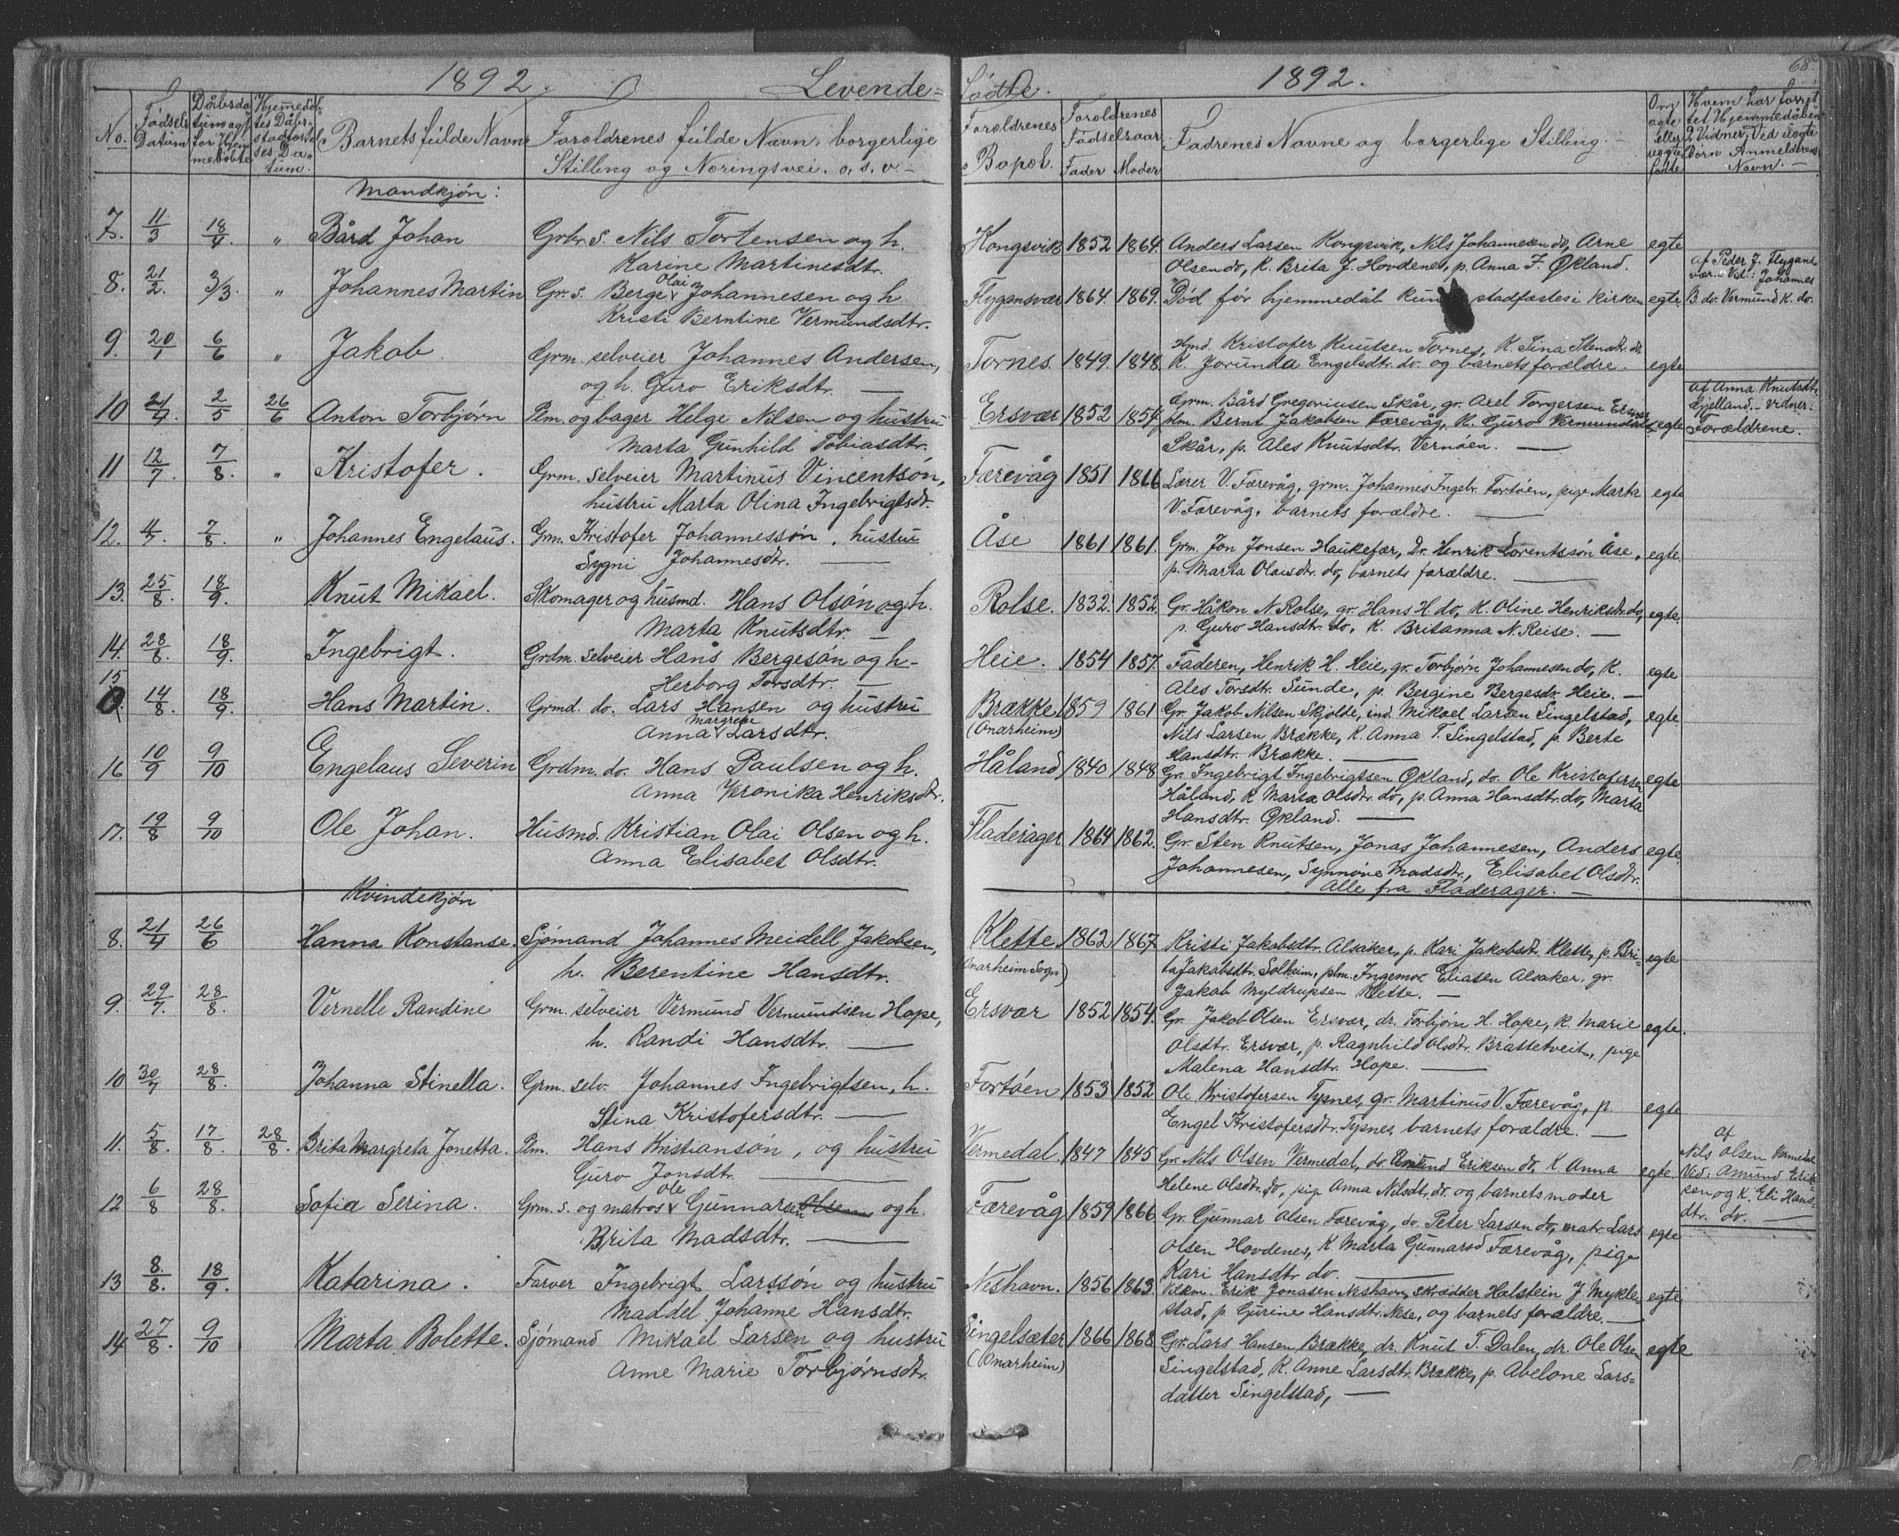 1892. Levende=
No. Fødsels Datum Dåbsda tum og f for Hjem mebøbte Hjemmedøb tes Dåbs stadfæstel ses Da tum. Barnets fulde Navn Foroldrenes fulde Navn, borgerlige
Stilling og Noringsvei. o. s. v.
Mandkjøn:
7. 11/3 18/4. „ Bård Johan Grbr. s. Nils Tortensen og h.
Karine Martinesdtr.
8. 21/2. 3/3. „ Johannes Martin Gr. s. Berge Olai Johannesen og h
Kristi Berntine Vermundsdtr.
9. 20/1 6/6 „ Jakob. Grm. selveier Johannes Andersen,
og h. Guro Eriksdtr.
10 2/5 26/6 Anton Torbjørn Plm. og bager Helge Nilsen og hustru
Marta Gunhild Tobiasdtr.
11 12/7. 7/8. „ Kristofer. Grm. selveier Martinus Vincentsön,
hustru Marta Olina Ingebrigtsdt.
12. 4/7. 7/8. „ Johannes Engelaus. Grm. Kristofer Johannessön, hustru
Sygni Johannesdtr.
13. 25/8. 18/9. Knut Mikael. Skomager og husmd. Hans Olsön og h.
Marta Knutsdtr.
14. 28/8. 18/9. Ingebrigt. Grdm. selveier Hans Bergesön og h-
Herborg Torsdtr.
15 14/8. 18/9. Hans Martin. Grmd. do. Lars Hansen og hustru
Anna Margrete Larsdtr.
16 10/9 9/10 Engelaus Severin Grdm. do. Hans Paulsen og h.
Anna Veronika Henriksdtr.
17. 19/8 9/10 Ole Johan. Husmd. Kristian Olai Olsen og h.
Anna Elisabet Olsdtr.
Kvindekjøn
8. 21/4 26/6 Hanna Konstanse. Sjømand Johannes Meidell Jakobsen,
h. Berentine Hansdtr.
9. 29/7. 28/8. Vernelle Randine Grm. selveier Vermund Vermundsen Hope,
h. Randi Hansdtr.
10 30/7 28/8. Johanna Stinella. Grm. selv. Johannes Ingebrigtsen, h.
Stina Kristofersdtr.
11. 5/8. 17/8. 28/8. Brita Margreta Jonetta. Plm. Hans Kristiansön, og hustru
Guro Jonsdtr.
12 6/8 28/8. Sofia Serina. Grm. s. og matros Ole Gunnarsen Olsen og h.
Brita Madsdtr.
13 8/8. 18/9. Katarina. Farver Ingebrigt Larssön og hustru
Maddel Johanne Hansdtr.
14 27/8. 9/10 Marta Bolette. Sjömand Mikael Larsen og hustru
Anne Marie Torbjørnsdtr.
Födte. 1892. 68.
Forældrenes Bopol. Foroldrenes Födselsaar Fader Moder Fadrenes Navne og borgerlige Stilling. Om ægte eller uægte födte Hvem har forret tet Hjemmedåben 2 Vidner, Ved uægte Børn Anmelderens Navn.
Kongsvik 1852 1864. Anders Larsen Kongsvik, Nils Johannesen do, Arne egte
Olsen do, K. Brita J. Hovdenes, p. Anna F. Økland.
Flygansvær 1864. 1869. Död før hjemmedåb kun stadfæstes i kirken egte af Peder J. Flygans vær. Vid: Johannes B. do. Vermund K. do.
Tornes. 1849. 1848. Hmd. Kristofer Knutsen Tornes, K. Sina Stensdtr. do
K. Jorunda Engelsdtr. do. og barnets forældre. egte
Ersvær 1852 1854. Grm. Bård Gregoriusen Skår, gr. Axel Torgersen Ersvær
plm. Bernt Jakobsen Færevåg, K. Guro Vermundsdtr. egte af Anna Knutsdt. Gjelland. Vidner: Forældrene.
Skår, p. Ales Knutsdtr. Vernöen.
Færevåg 1851 1866 Lærer V. Færevåg, grm. Johannes Ingebr. Tortöen, pige Marta egte
V. Færevåg, barnets forældre.
Åse 1861 1861. Grm. Jon Jonsen Haukefær, Dr. Henrik Lorentssön Åse, egte
p. Marta Olaisdtr. do, barnets forældre.
Rolse. 1832. 1852. Gr. Håkon N. Rolse, gr. Hans H. do, K. Oline Henriksdtr. do, egte.
p. Guro Hansdtr. do, K. Britanna N. Reise.
Heie. 1854 1857. Faderen, Henrik H. Heie, gr. Torbjørn Johannesen do, K. egte
Ales Torsdtr. Sunde, p. Bergine Bergesdtr. Heie.
Brække (Onarheim) 1859 1861 Gr. Jakob Nilsen Skjolte, ind. Mikael Larsen Singelstad, egte.
Nils Larsen Brække, K. Anna T. Singelstad, p. Berte
Hansdtr. Brække.
Håland 1840 1848. Gr. Ingebrigt Ingebrigtsen Økland, do. Ole Kristofersen egte
Håland, K Marta Olsdtr. do, p. Anna Hansdtr. do, Marta
Hansdtr. Økland.
Fladerager 1864 1862. Gr. Sten Knutsen, Jonas Johannesen, Anders egte.
Johannesen, Synnöve Madsdtr., Elisabet Olsdtr.
Alle fra Fladerager.
Klette (Onarheim Sogn) 1862 1867 Kristi Jakobsdtr. Alsaker, p. Kari Jakobsdt. Klette, p. Bri= egte
ta Jakobsdtr. Solheim, plm. Ingemor Eliasen Alsaker. gr.
Jakob Myldrupsen Klette.
Ersvær 1852 1854. Gr. Jakob Olsen Ersvær, dr. Torbjörn H. Hope, K. Marie egte.
Olsdtr. Ersvær, p. Ragnhild Olsdtr. Brattetveit, pige
Malena Hansdtr. Hope.
Tortöen 1853 1852 Ole Kristofersen Tysnes, gr. Martinus V. Færevåg, p. egte
Engel Kristofersdtr. Tysnes, barnets forældre.
Vermedal 1847 1845 Gr. Nils Olsen Vermedal, do. Amund Eriksen do, K. Anna egte af Nils Olsen Vermedal Vid: Amund Erik sen og K. Eli Hans dtr. do.
Helene Olsdtr. do, pig. Anna Nilsdt. do. og barnets moder
Færevåg 1859 1866 Gr. Gunnar Olsen Færevåg, do. Peter Larsen do, matr. Lars egte
Olsen Hovdenes, K Marta Gunnarsd Færevåg, pige
Kari Hansdtr do.
Neshavn. 1856 1863. Erik Jonasen Neshavn, skrædder Halstein J. Mykle= egte
stad, p. Gurine Hansdtr. Nese, og barnets forældre.
Singelsæter (Onarheim) 1866 1868 Gr. Lars Hansen Brække, dr. Knut T. Dalen, dr. Ole Olsen egte
Singelstad, K. Anne Larsdtr. Brække, p. Abelone Lars=
datter Singelstad,